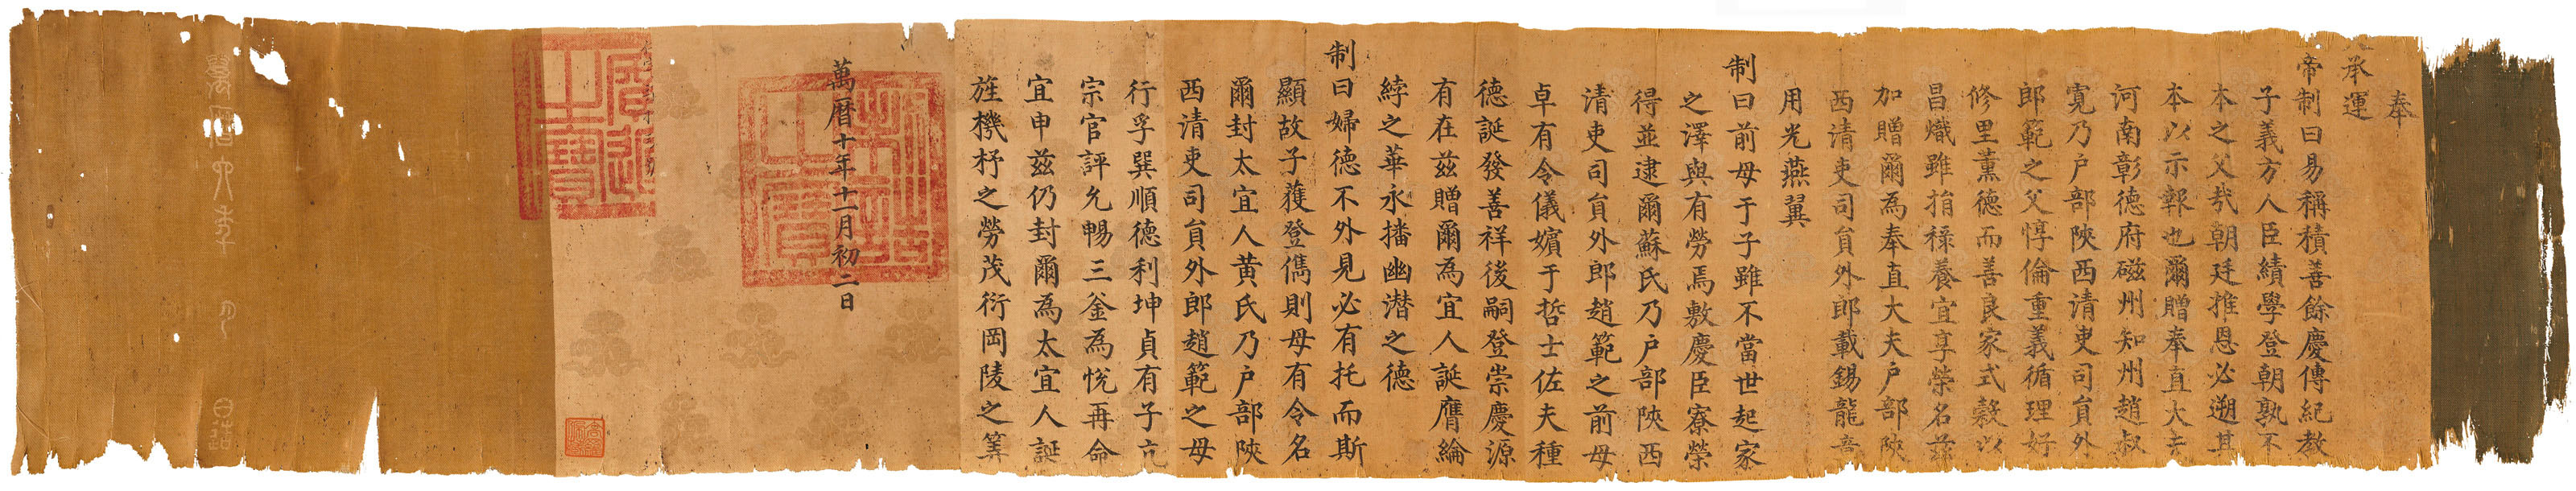 奉
承運
帝制曰易稱積善餘慶傳紀教
子義方人臣績學登朝孰不
本之父哉朝廷推恩必遡其
本以示報也爾贈奉直大夫
河南彰德府磁州知州趙叔
寬乃戶部陝西清吏司員外
郎範之父惇倫重義循理好
修里薰德而善良家式穀以
昌熾雖捐祿養宜享榮名茲
加贈爾為奉直大夫戶部陝
西清吏司員外郎載錫龍章
用光燕翼
制曰前母于子雖不當世起家
之澤與有勞焉敷慶臣寮榮
得並逮爾蘇氏乃戶部陝西
清吏司員外郎趙範之前母
卓有令儀嬪于哲士佐夫種
德誕發善祥後嗣登崇慶源
有在茲贈爾為宜人誕膺綸
綍之華永播幽潛之德
制曰婦德不外見必有托而斯
顯故子獲登儁則母有令名
爾封太宜人黃氏乃戶部陝
西清吏司員外郎趙範之母
行孚巽順德利坤貞有子亢
宗官評允暢三釜為悅再命
宜申茲仍封爾為太宜人誕
旌機杼之勞茂衍岡陵之筭
萬曆十年十一月初二日
制誥之寶
萬曆 年 月 日造